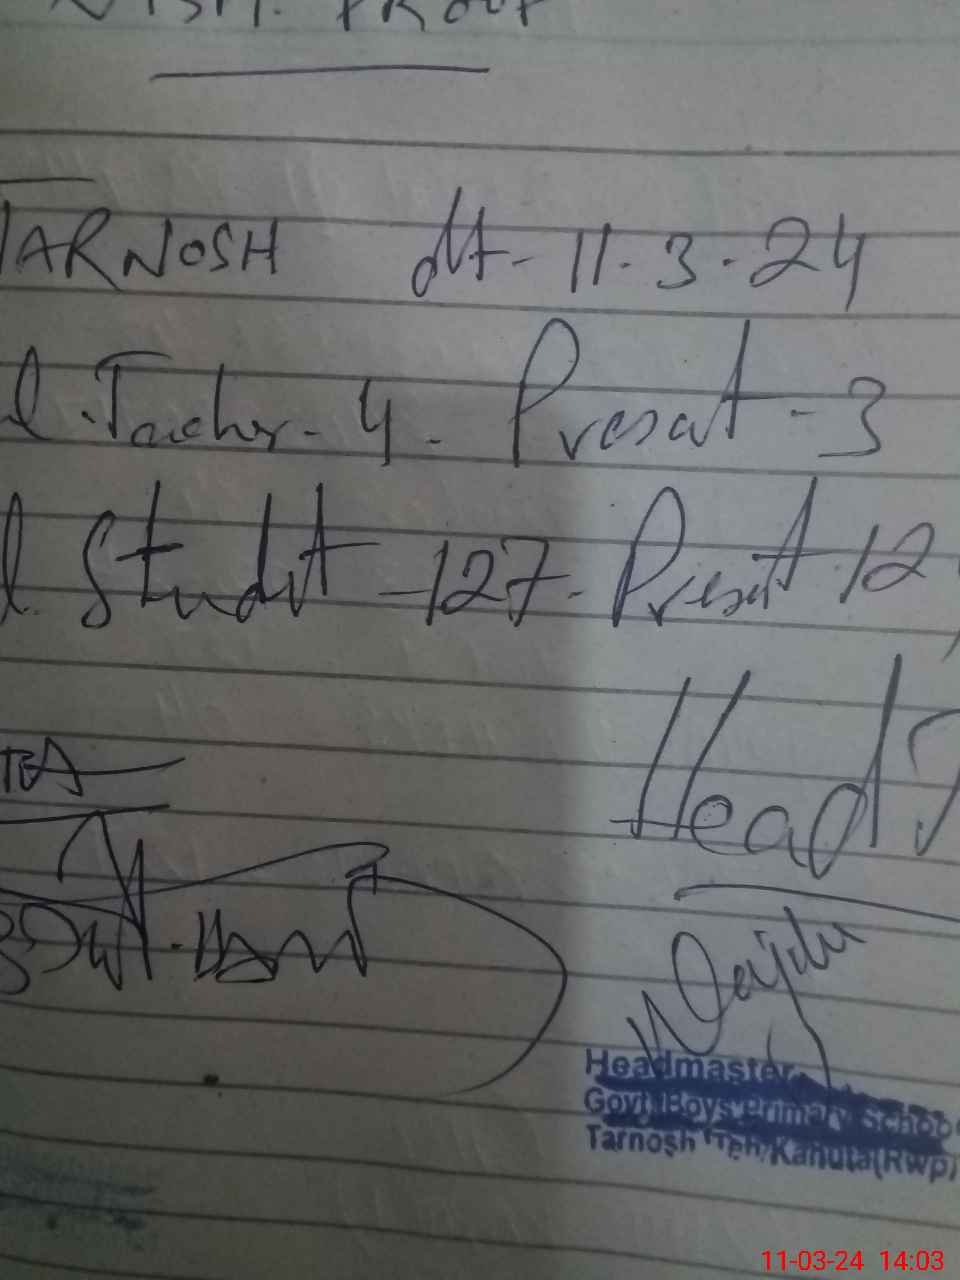 PROOF
TARNOSH dt- 11.3.24
l. Teacher- 4. Present - 3
l. Student - 127. Present 12
Head
Headmaster
Govt Boys Primary School
Tarnosh Teh Kahuta(Rwp)
11-03-24 14:03